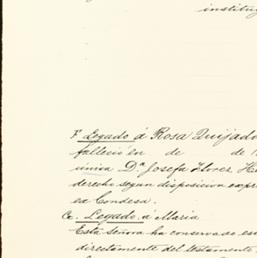 institu
F. Legado á Rosa Quijad
falleció en de de 1
única Dª Josefa Flores He
derecho segun disposicion expr
ex Condesa.
G. Legado a Maria
Esta señora ha conservado es
directamente del testamento